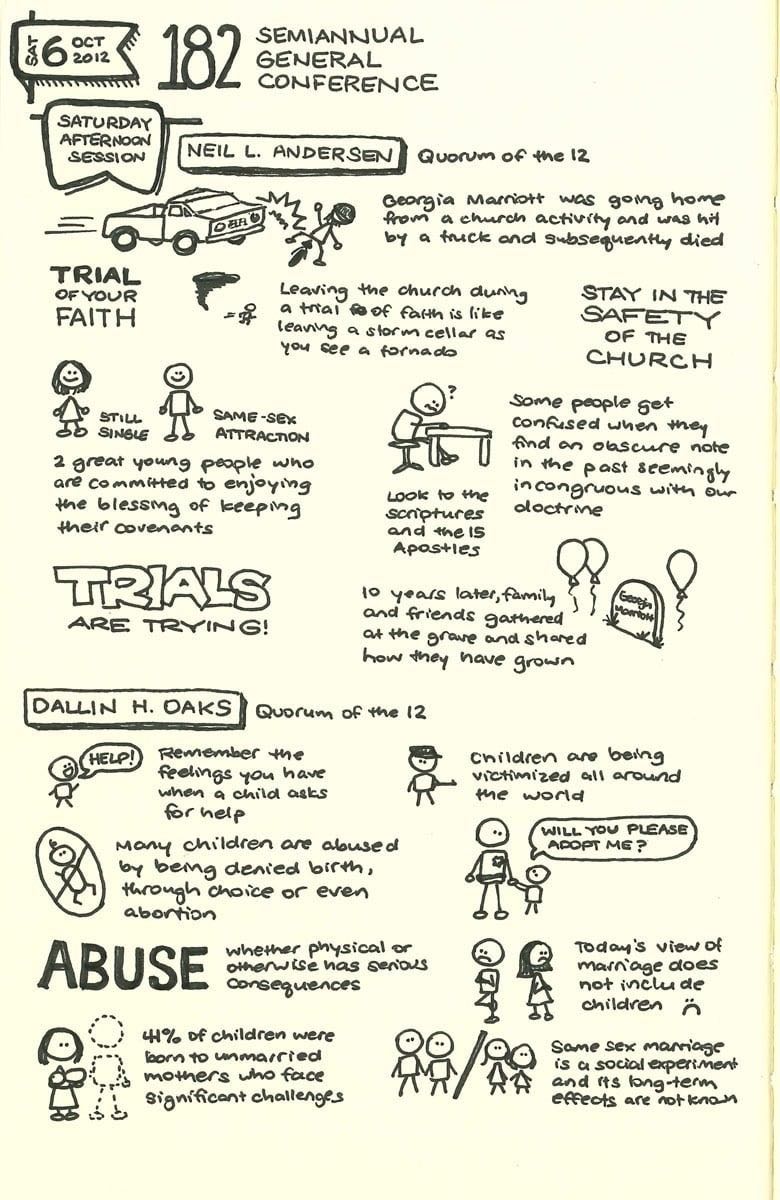 SAT 6 OCT 2012
182
SEMIANNUAL
GENERAL
CONFERENCE
SATURDAY
AFTERNOON
SESSION
NEIL L. ANDERSEN
Quorum of the 12
Georgia Marriott was going home
from a church activity and was hit
by a truck and subsequently died
TRIAL
OF YOUR
FAITH
Leaving the church during
a trial of faith is like
leaving a storm cellar as
you see a tornado
STAY IN THE
SAFETY
OF THE
CHURCH
STILL
SINGLE
SAME-SEX
ATTRACTION
2 great young people who
are committed to enjoying
the blessing of keeping
their covenants
?
Look to the
scriptures
and the 15
Apostles
Some people get
confused when they
find an obscure note
in the past seemingly
incongruous with our
doctrine
TRIALS
ARE TRYING!
10 years later, family
and friends gathered
at the grave and shared
how they have grown
Georgia
Marriott
DALLIN H. OAKS
Quorum of the 12
HELP!
Remember the
feelings you have
when a child asks
for help
Children are being
victimized all around
the world
Many children are abused
by being denied birth,
through choice or even
abortion
WILL YOU PLEASE
ADOPT ME?
ABUSE
whether physical or
otherwise has serious
consequences
Today's view of
marriage does
not include
children
41% of children were
born to unmarried
mothers who face
significant challenges
Same sex marriage
is a social experiment
and its long-term
effects are not known